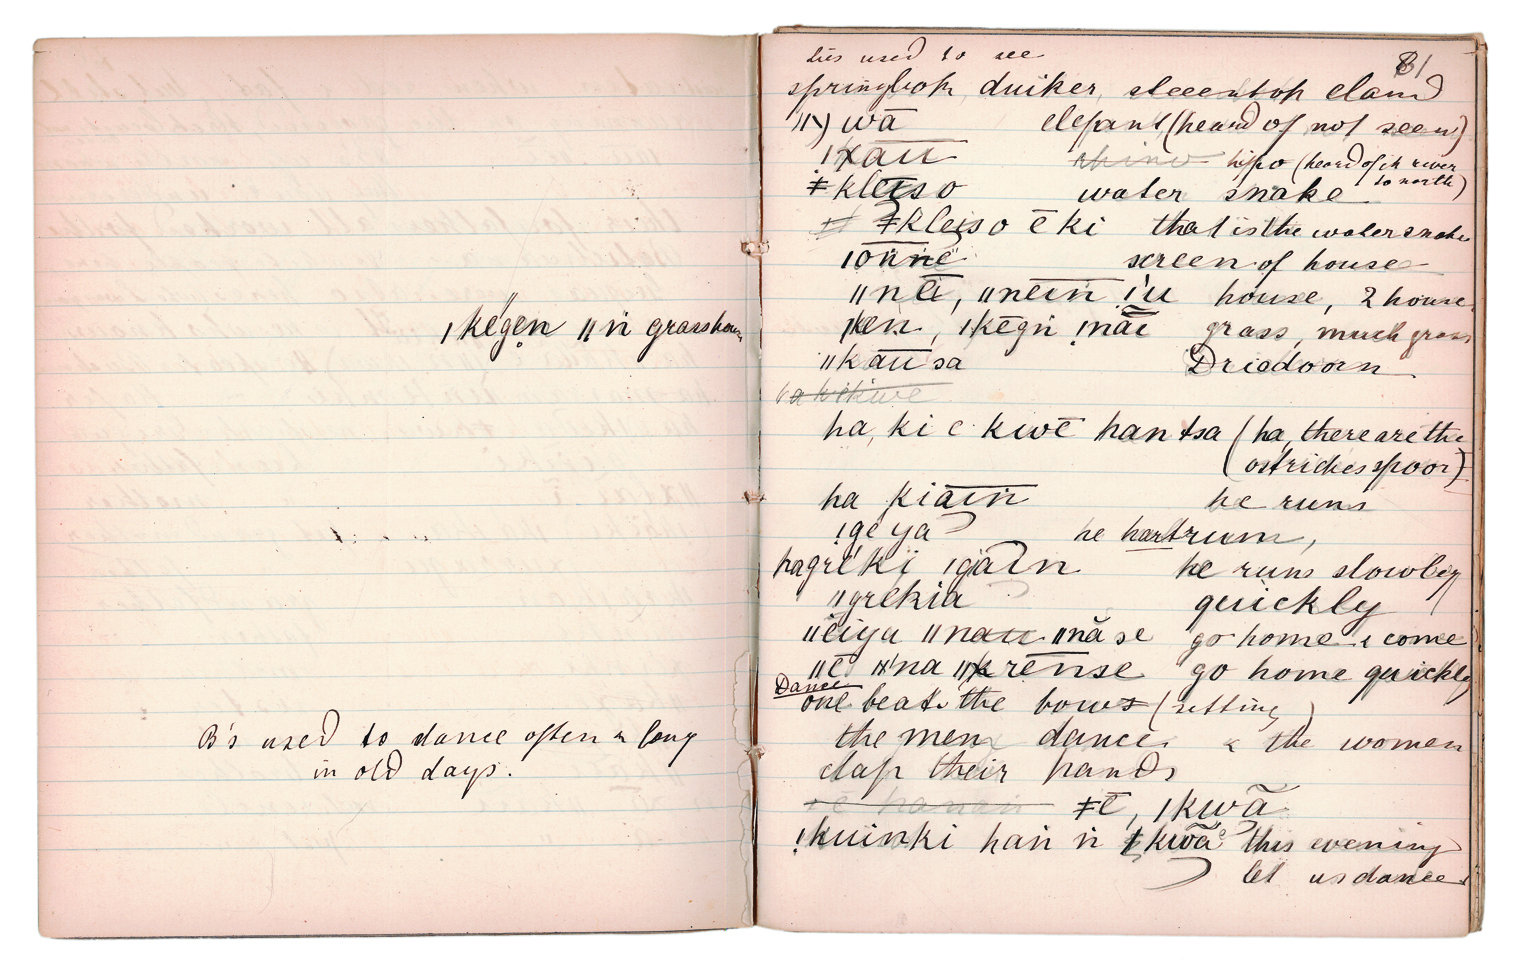 ǀkēgen ǁn grasshouse
B's used to dance often & long
in old days.
81
used to see
springbok duiker steenbok eland
wā elepant (heard of not seen)
ǃxau rhino hippo (heard of in river
to north)
ǂkleiso water snake
ǂkleiso ē ki that is the water snake
ǀonne screen of house
ǁnei, ǁnein ǃ'u house, 2 house
ǀken, ǀkēgn ǃnāi grass, much grass
ǁkausa Driedoorn
ha, ki e kwē han tsa (ha, there are the
ostriches spoor)
ha kiain he runs
ǃgeya he hartrum,
hagreki ǀgain he runs slowley
ǁgrekia quickly
ǁēiya ǁnau ǁnăse go home & come
ǁē ǁna ǁkrēnse go home quickly
Dance
one beats the bows (sitting)
the men dance & the women
clap their hands
ǂē, ǀkwā
ǃkuinki han n ǂkwā this evening
let us dance